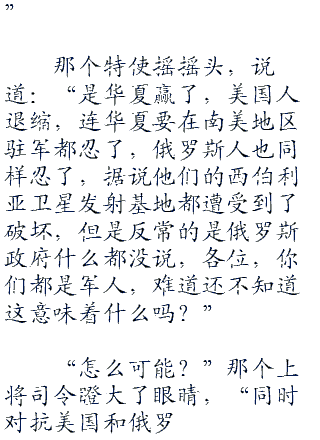 ”
那个特使摇摇头，说
道：“是华夏赢了，美国人
退缩，连华夏要在南美地区
驻军都忍了，俄罗斯人也同
样忍了，据说他们的西伯利
亚卫星发射基地都遭受到了
破坏，但是反常的是俄罗斯
政府什么都没说，各位，你
们都是军人，难道还不知道
这意味着什么吗？”
“怎么可能？”那个上
将司令瞪大了眼睛，“同时
对抗美国和俄罗